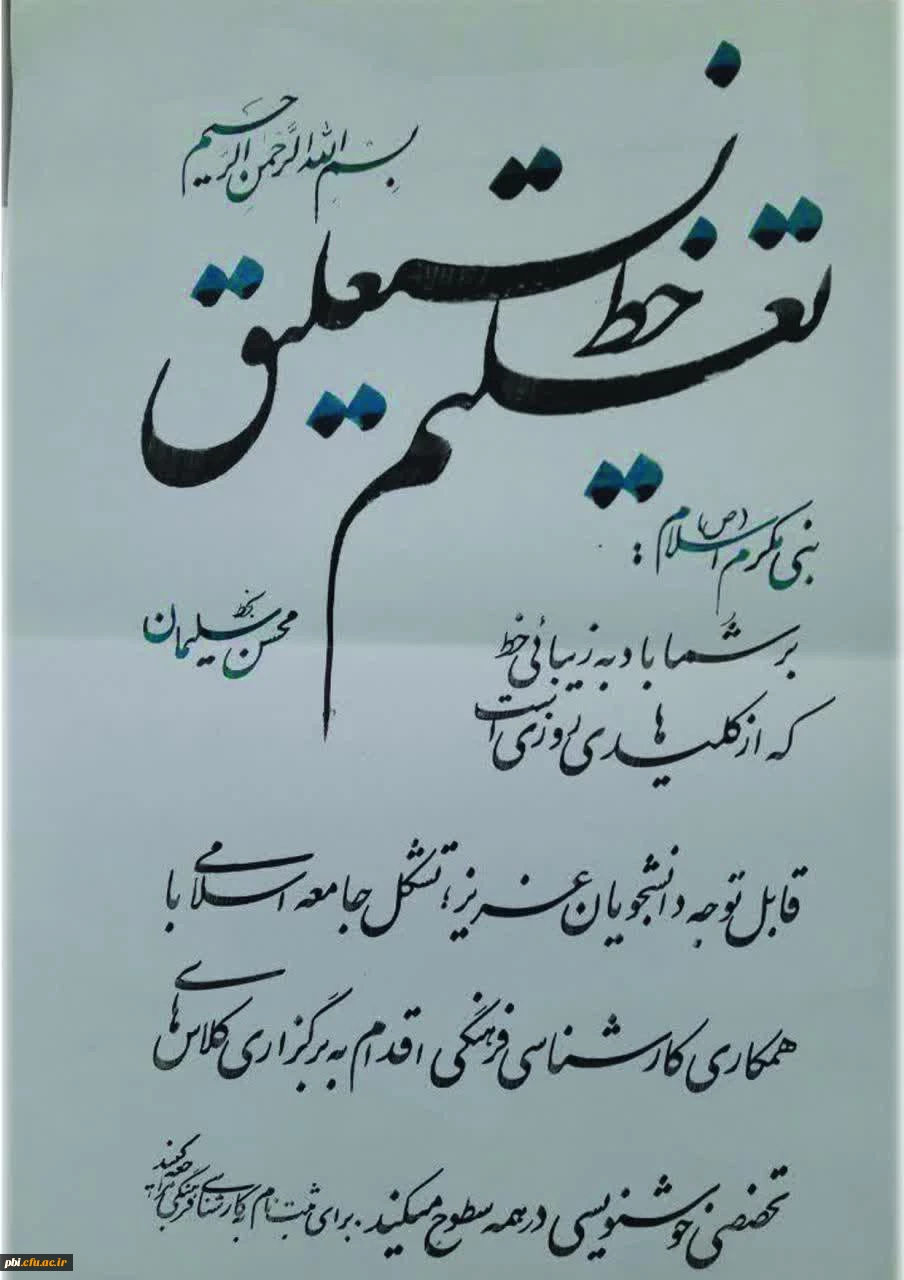 بِسْمِ اللهِ الرَّحمٰنِ الرَّحیم
تعلیم خط نستعلیق
نبی مکرم اسلام (ص) :
بر شُما باد به زیبائی خط
که از کلیدهای روزی است
بخط
محسن سلیمان
قابل توجه دانشجویان عزیز؛ تشکل جامعه اسلامی با
همکاری کارشناسی فرهنگی اقدام به برگزاری کلاس‌های
تخصصی خوشنویسی در همه سطوح میکند. برای ثبت نام به کارشناسی فرهنگی مراجعه کنید
pbl.cfu.ac.ir